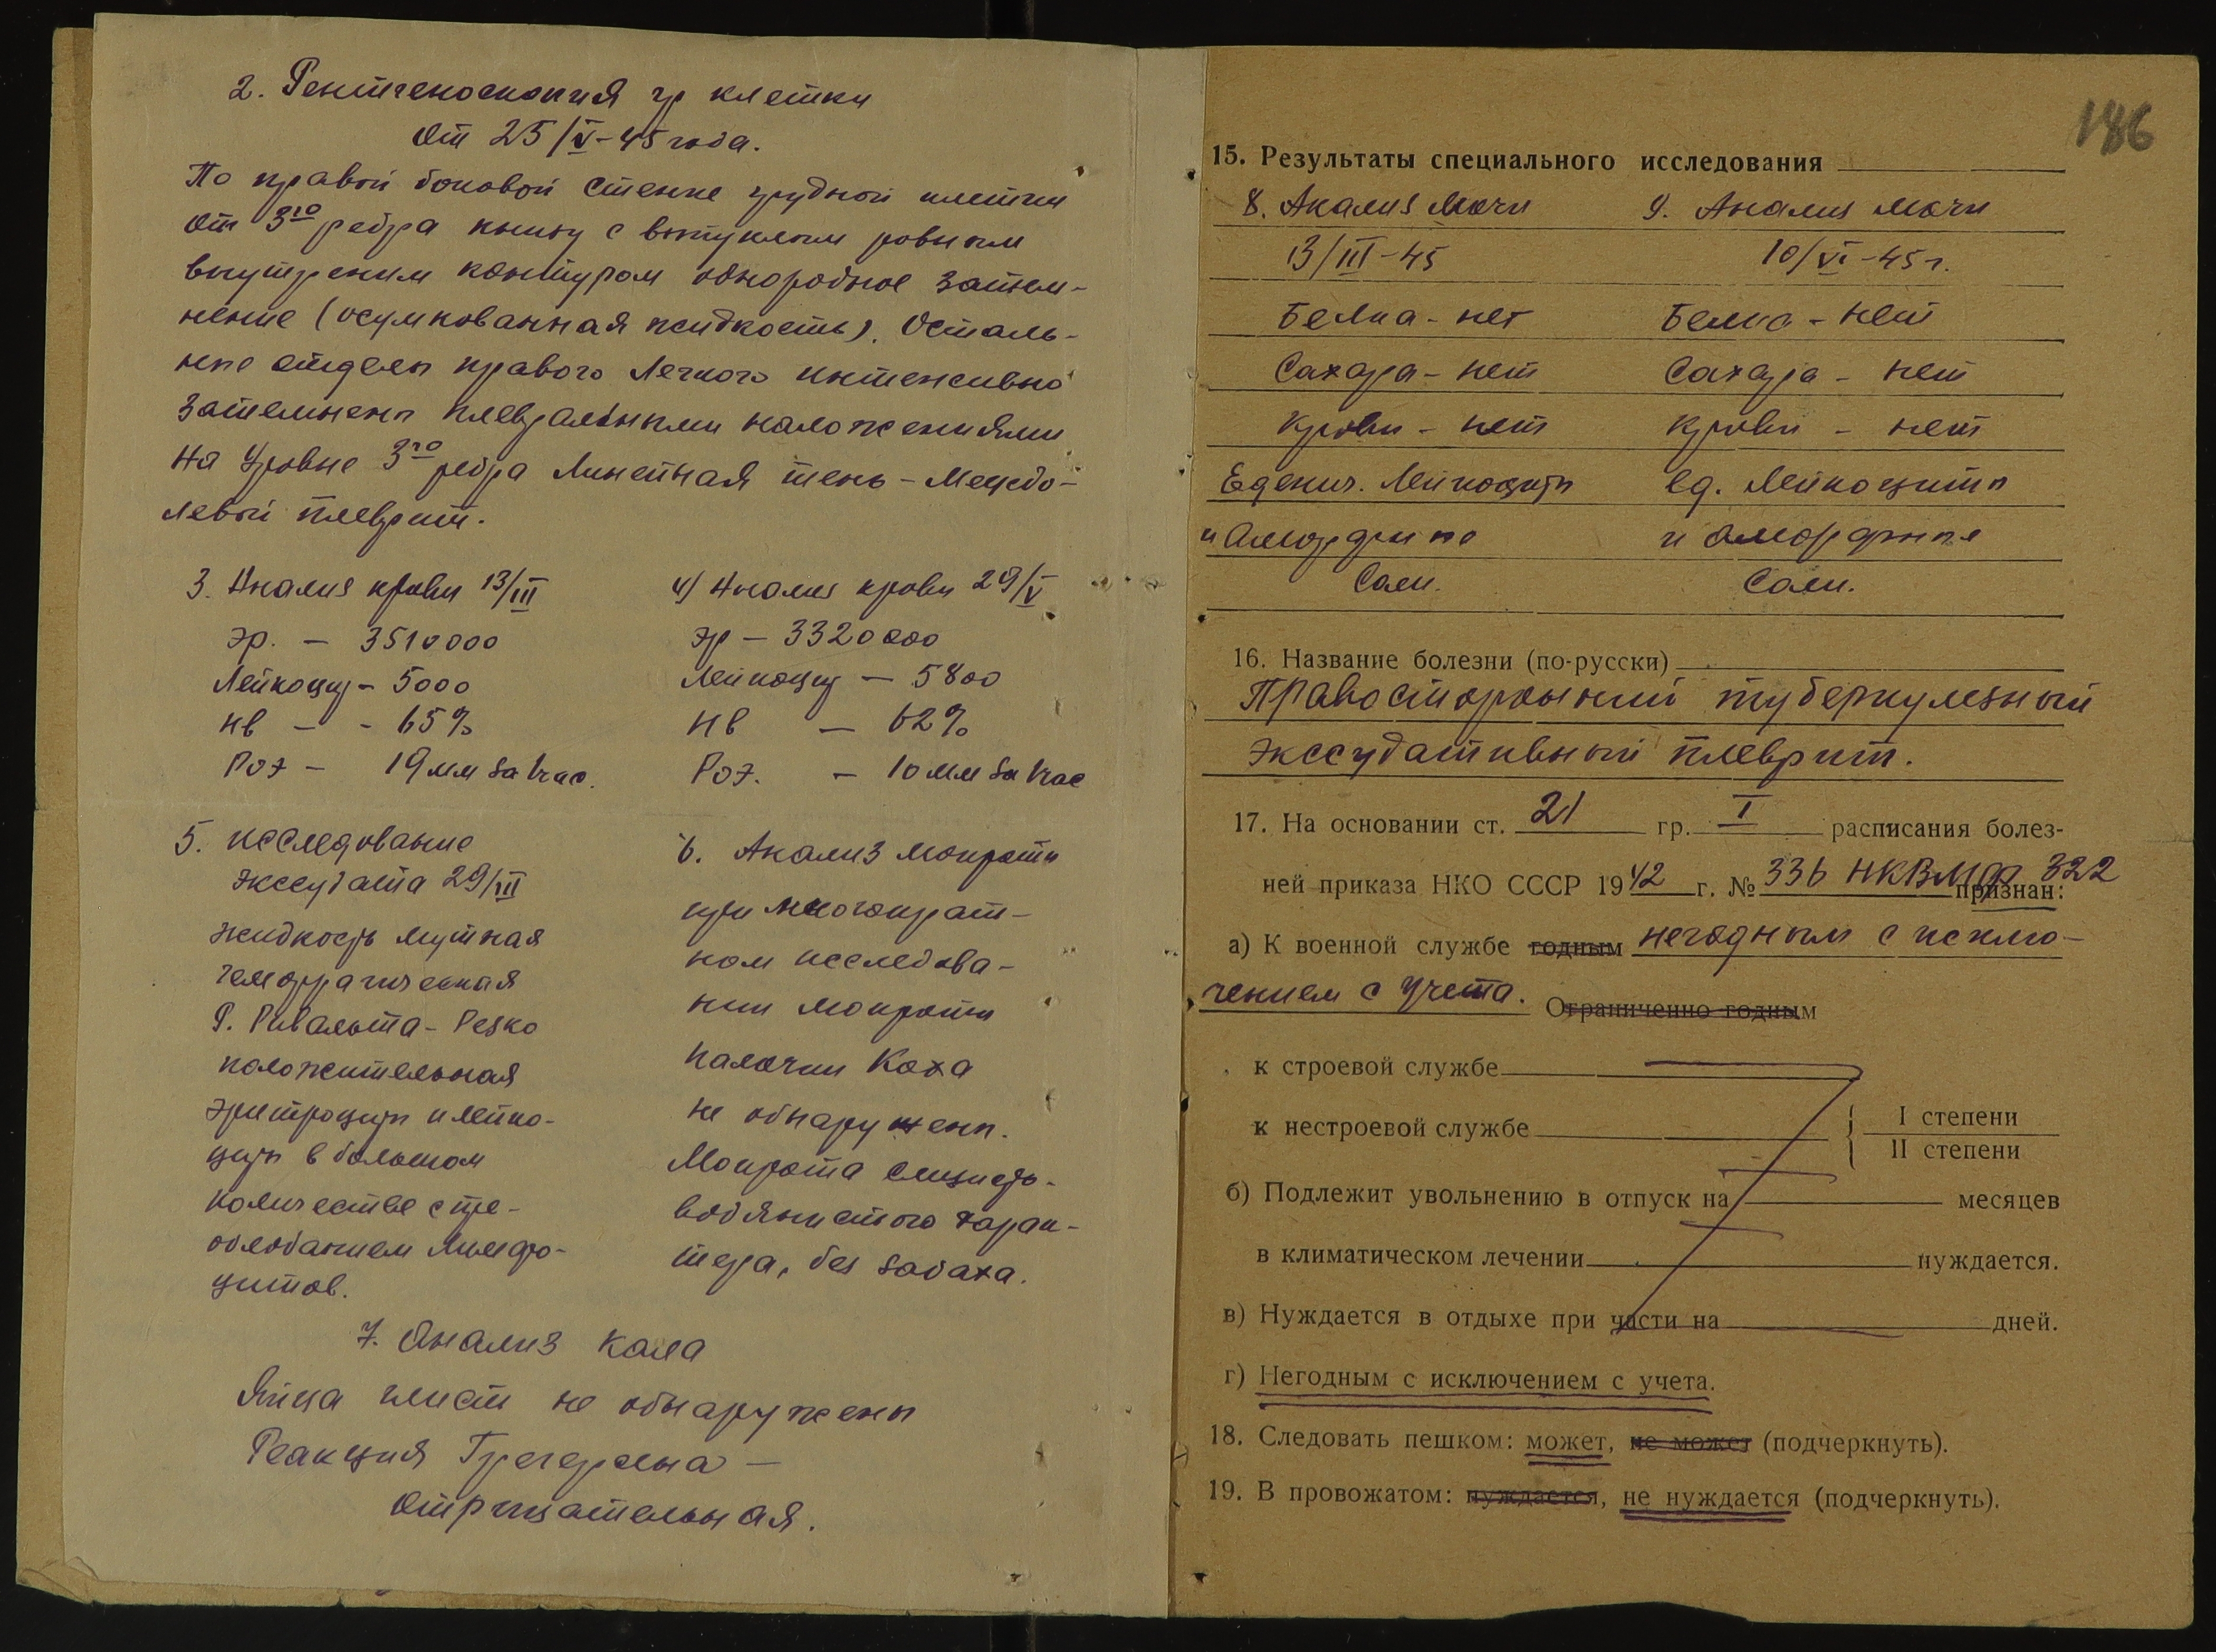 2. Рентгеноскопия гр клетки
от 25/V-45 года.
По правой боковой стенке грудной клетки
от 3го ребра книзу с выпуклым ровным
внутреним контуром однородное затем-
нение (осумкованная жидкость). Осталь-
ные отделы правого легкого интенсивно
затемнены плевральными наложениями
На уровне 3го ребра линейная тень - междо-
левой плеврит.
3. Анализ крови 13/III
эр. — 3510000
Лейкоцит - 5000
НВ — - 65%
РОЭ — 19 мм за час.
4) Анализ крови 29/V
эр — 3320000
Лейкоцит — 5800
НВ — 62%
РОЭ. — 10 мм за час
5. исследование
экссудата 29/III
жидкость мутная
геморрагическая
Р. Ривальта - резко
положительная
эритроциты и лейко-
циты в большом
количестве с пре-
обладанием лимфо-
цитов.
6. Анализ мокроты
при многократ-
ном исследова-
нии мокроты
палочки Коха
не обнаружены.
Мокрота слизисто-
водянистого харак-
тера, без запаха.
7. Анализ кала
Яйца глист не обнаружены
Реакция Грегерсена —
отрицательная.
186
15. Результаты специального исследования
8. Анализ мочи
13/III-45
Белка - нет
Сахара - нет
Крови - нет
Еденич. лейкоциты
и аморфные
соли.
9. Анализ мочи
10/VI-45 г.
Белка - нет
Сахара - нет
Крови - нет
ед. лейкоциты
и аморфные
соли.
16. Название болезни (по-русски)
Правосторонний туберкулезный
экссудативный плеврит.
17. На основании ст. 21 гр. I расписания болез-
ней приказа НКО СССР 1942 г. № 336 НКВМФ 322 признан:
а) К военной службе годным негодным с исклю-
чением с учета. Ограниченно годным
к строевой службе
к нестроевой службе { I степени
II степени
б) Подлежит увольнению в отпуск на месяцев
в климатическом лечении нуждается.
в) Нуждается в отдыхе при части на дней.
г) Негодным с исключением с учета.
18. Следовать пешком: может, не может (подчеркнуть).
19. В провожатом: нуждается, не нуждается (подчеркнуть).